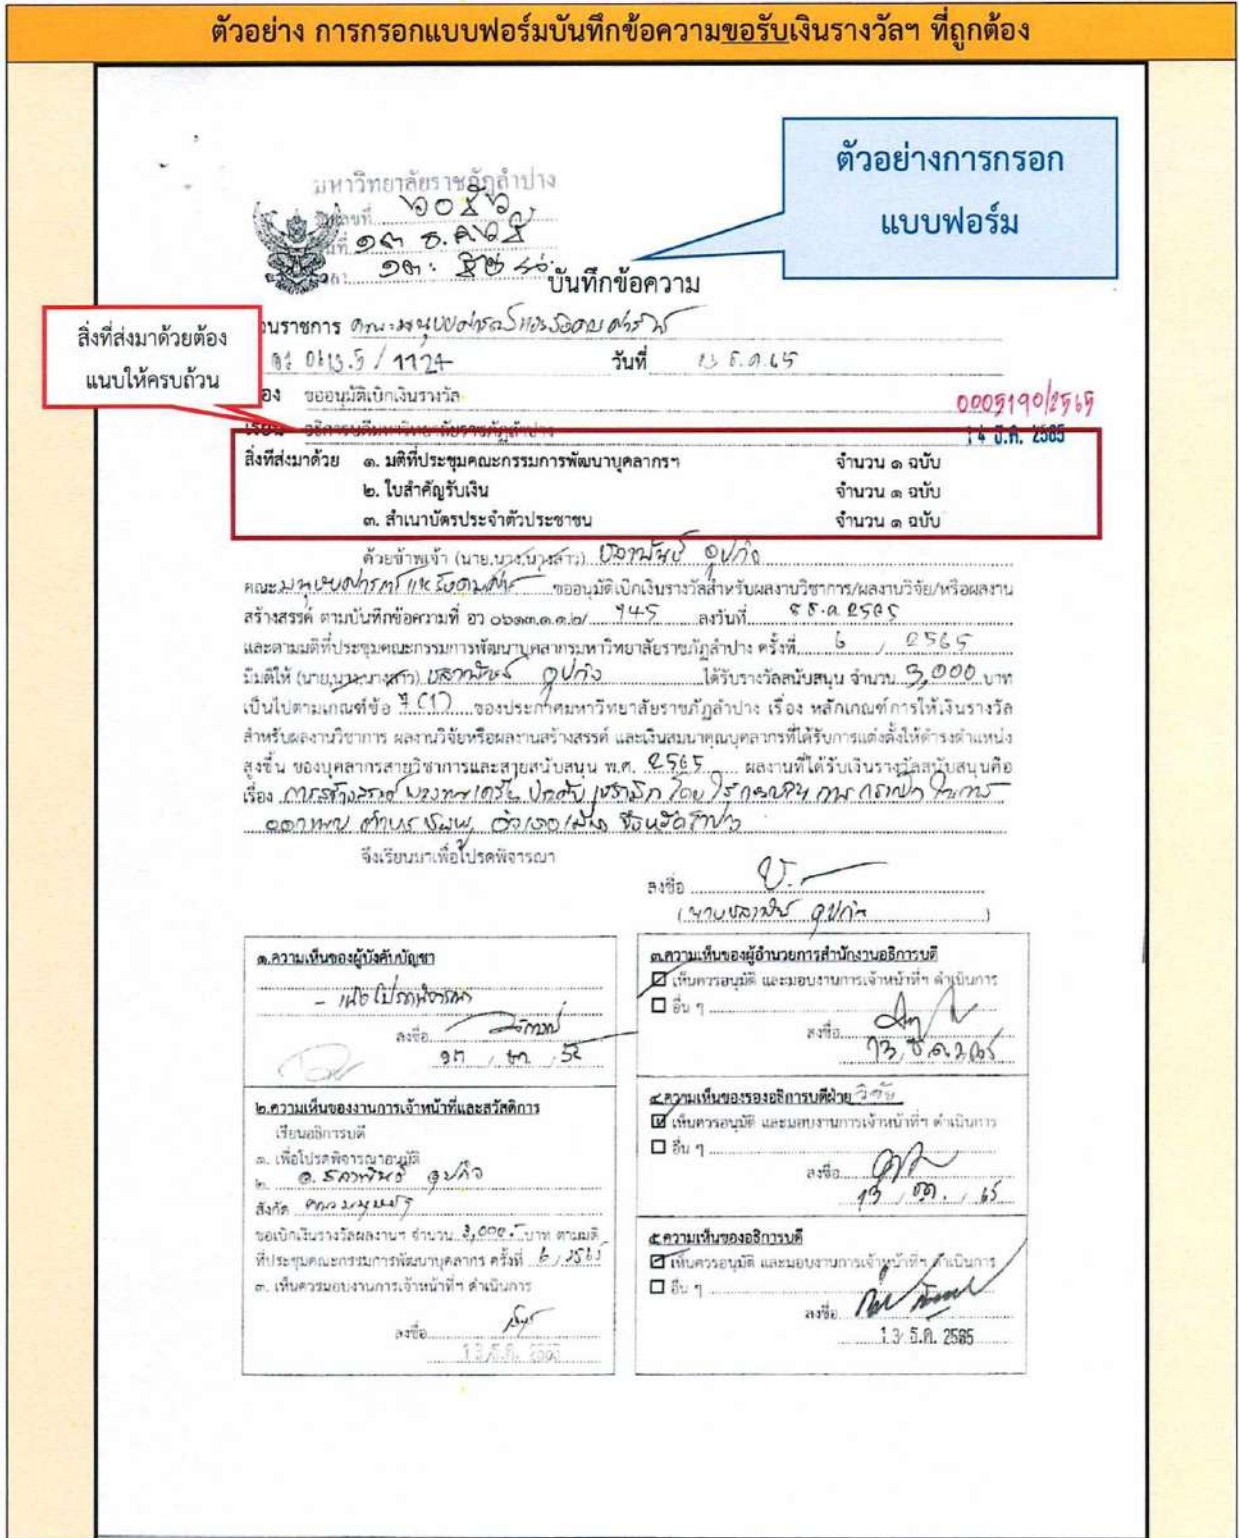 ตัวอย่าง การกรอกแบบฟอร์มบันทึกข้อความขอรับเงินรางวัลฯ ที่ถูกต้อง
ตัวอย่างการกรอก
แบบฟอร์ม
มหาวิทยาลัยราชภัฏลำปาง
บันทึกข้อความ
สิ่งที่ส่งมาด้วยต้อง
แนบให้ครบถ้วน
นราชการ คณะมนุษยศาสตร์และสังคมศาสตร์
วันที่ 13 ธ.ค.65
อง ขออนุมัติเบิกเงินรางวัล
0005190/2565
เรียน อธิการบดีมหาวิทยาลัยราชภัฏลำปาง
14 ธ.ค. 2565
สิ่งที่ส่งมาด้วย ๑. มติที่ประชุมคณะกรรมการพัฒนาบุคลากรฯ จำนวน ๑ ฉบับ
๒. ใบสำคัญรับเงิน จำนวน ๑ ฉบับ
๓. สำเนาบัตรประจำตัวประชาชน จำนวน ๑ ฉบับ
ด้วยข้าพเจ้า (นาย,นาง,นางสาว)
คณะมนุษยศาสตร์และสังคมศาสตร์ ขออนุมัติเบิกเงินรางวัลสำหรับผลงานวิชาการ/ผลงานวิจัย/หรือผลงาน
สร้างสรรค์ ตามบันทึกข้อความที่ อว ๐๖๑๓.๑.๓.๒/ 145 ลงวันที่ 8 ธ.ค 2565
และตามมติที่ประชุมคณะกรรมการพัฒนาบุคลากรมหาวิทยาลัยราชภัฏลำปาง ครั้งที่ 6 / 2565
มีมติให้ (นาย,นาง,นางสาว) ได้รับรางวัลสนับสนุน จำนวน 3,000 บาท
เป็นไปตามเกณฑ์ข้อ 7 (1) ของประกาศมหาวิทยาลัยราชภัฏลำปาง เรื่อง หลักเกณฑ์การให้เงินรางวัล
สำหรับผลงานวิชาการ ผลงานวิจัยหรือผลงานสร้างสรรค์ และเงินสมนาคุณบุคลากรที่ได้รับการแต่งตั้งให้ดำรงตำแหน่ง
สูงขึ้น ของบุคลากรสายวิชาการและสายสนับสนุน พ.ศ. 2565 ผลงานที่ได้รับเงินรางวัลสนับสนุนคือ
เรื่อง การสร้างสรรค์
จังหวัดลำปาง
จึงเรียนมาเพื่อโปรดพิจารณา
ลงชื่อ
๑.ความเห็นของผู้บังคับบัญชา
- เพื่อโปรดพิจารณา
ลงชื่อ
๒.ความเห็นของงานการเจ้าหน้าที่และสวัสดิการ
เรียนอธิการบดี
๑. เพื่อโปรดพิจารณาอนุมัติ
๒.
สังกัด คณะมนุษยฯ
ขอเบิกเงินรางวัลผลงานฯ จำนวน 3,000.- บาท ตามมติ
ที่ประชุมคณะกรรมการพัฒนาบุคลากร ครั้งที่ 6 / 2565
๓. เห็นควรมอบงานการเจ้าหน้าที่ฯ ดำเนินการ
ลงชื่อ
๓.ความเห็นของผู้อำนวยการสำนักงานอธิการบดี
เห็นควรอนุมัติ และมอบงานการเจ้าหน้าที่ฯ ดำเนินการ
อื่น ๆ
ลงชื่อ
13 ธ.ค. 2565
๔.ความเห็นของรองอธิการบดีฝ่าย วิจัย
เห็นควรอนุมัติ และมอบงานการเจ้าหน้าที่ฯ ดำเนินการ
อื่น ๆ
ลงชื่อ
๕.ความเห็นของอธิการบดี
เห็นควรอนุมัติ และมอบงานการเจ้าหน้าที่ฯ ดำเนินการ
อื่น ๆ
ลงชื่อ
13 ธ.ค. 2565